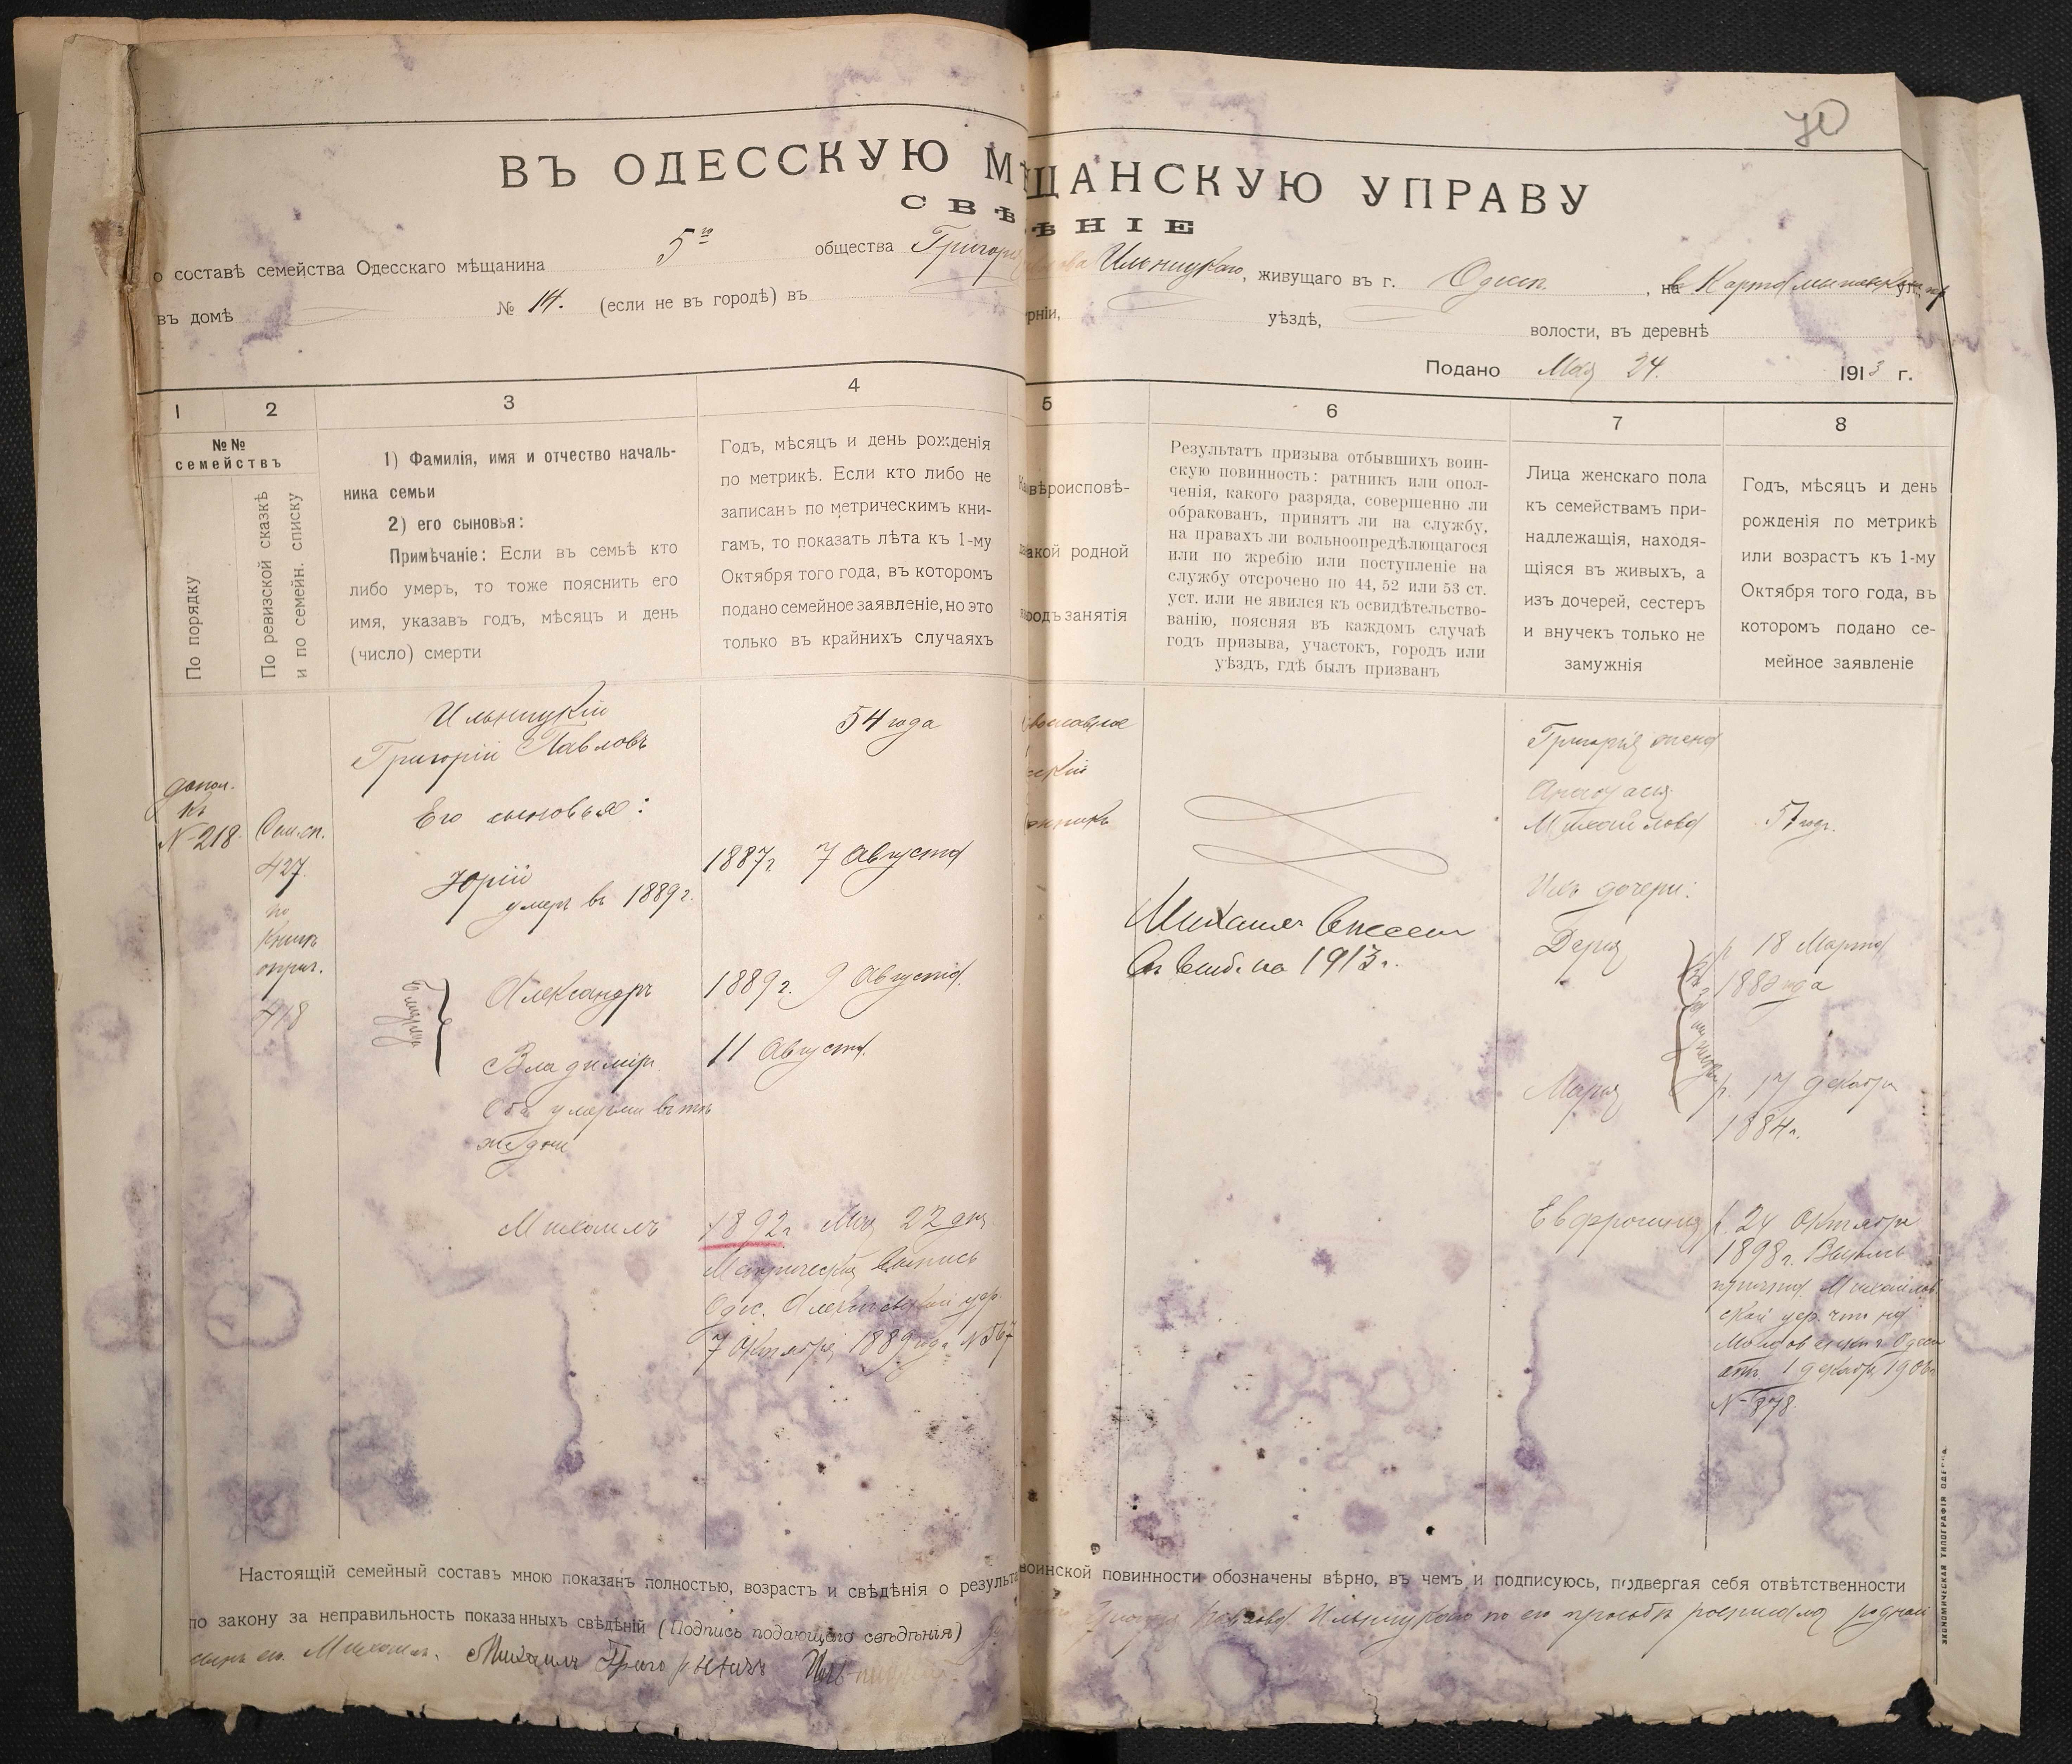 70
ВЪ ОДЕССКУЮ МѢЩАНСКУЮ УПРАВУ
СВѢДѢНІЕ
о составѣ семейства Одесскаго мѣщанина 5го общества Григорія Павлова Ильницкаго, живущаго въ г. Одессѣ, на
въ домѣ № 14. (если не въ городѣ) въ ерніи, уѣздѣ, волости, въ деревнѣ
Подано Мая 24. 1913 г.
1 2 3 4 5 6 7 8
№№
семействъ
По порядку
По ревизской сказкѣ
и по семейн. списку
1) Фамилія, имя и отчество началь-
ника семьи
2) его сыновья:
Примѣчаніе: Если въ семьѣ кто
либо умеръ, то тоже пояснить его
имя, указавъ годъ, мѣсяцъ и день
(число) смерти
Годъ, мѣсяцъ и день рожденія
по метрикѣ. Если кто либо не
записанъ по метрическимъ кни-
гамъ, то показать лѣта къ 1-му
Октября того года, въ которомъ
подано семейное заявленіе, но это
только въ крайнихъ случаяхъ
вѣроисповѣ-
акой родной
родъ занятія
Результатъ призыва отбывшихъ воин-
скую повинность: ратникъ или опол-
ченія, какого разряда, совершенно ли
обракованъ, принятъ ли на службу,
на правахъ ли вольноопредѣляющагося
или по жребію или поступленіе на
службу отсрочено по 44, 52 или 53 ст.
уст. или не явился къ освидѣтельство-
ванію, поясняя въ каждомъ случаѣ
годъ призыва, участокъ, городъ или
уѣздъ, гдѣ былъ призванъ
Лица женскаго пола
къ семействамъ при-
надлежащія, находя-
щіяся въ живыхъ, а
изъ дочерей, сестеръ
и внучекъ только не
замужнія
Годъ, мѣсяцъ и день
рожденія по метрикѣ
или возрастъ къ 1-му
Октября того года, въ
которомъ подано се-
мейное заявленіе
допол.
къ
№ 218.
Сем. сп.
427.
по
книгѣ
418
Ильницкій
Григорій Павловъ
54 года
Его сыновья:
Юрій
умеръ въ 1889 г.
1887 г. 7 Августа
Александръ
1889 г. 9 Августа.
умерли
Владиміръ
11 Августа.
Оба умерли въ тѣ
же дни
Михаилъ
1892 г. Мая 22 дня
Метрическая выпись
Одес. Алексѣевской цер.
7 Октября 1889 года № 567
Михаилъ внесенъ
1913 г.
Григорія жена
Анастасія
Михайлова
57 годъ.
Ихъ дочери:
Дарія
р. 18 Марта
188 года
Марія
р. 17 декабря
1884 г.
Евфросинія
р. 24 Октября
1898 г. Выпись
причта Михайлов-
ской цер. что на
Молдаванкѣ г. Одессы
отъ 1 декабря 190
№ 878.
Настоящій семейный составъ мною показанъ полностью, возрастъ и свѣдѣнія о результа воинской повинности обозначены вѣрно, въ чемъ и подписуюсь, подвергая себя отвѣтственности
по закону за неправильность показанныхъ свѣдѣній (Подпись подающаго свѣдѣнія) Павлова Ильницкаго по его просьбѣ росписался родной
сынъ его Михаилъ. Михаилъ Григорьевичъ Ильницкій
ЭКОНОМИЧЕСКАЯ ТИПОГРАФІЯ ОДЕССА